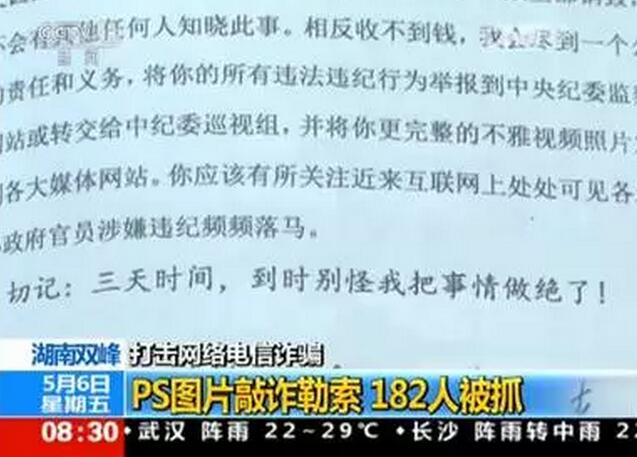 CCTV
新闻
会有其他任何人知晓此事。相反收不到钱，我会尽到一个
责任和义务，将你的所有违法违纪行为举报到中央纪委监
站或转交给中纪委巡视组，并将你更完整的不雅视频照片
各大媒体网站。你应该有所关注近来互联网上处处可见各
政府官员涉嫌违纪频频落马。
切记：三天时间，到时别怪我把事情做绝了！
湖南双峰 打击网络电信诈骗
5月6日
星期五
PS图片敲诈勒索 182人被抓
08:30 武汉 阵雨 22～29℃ 长沙 阵雨转中雨 22